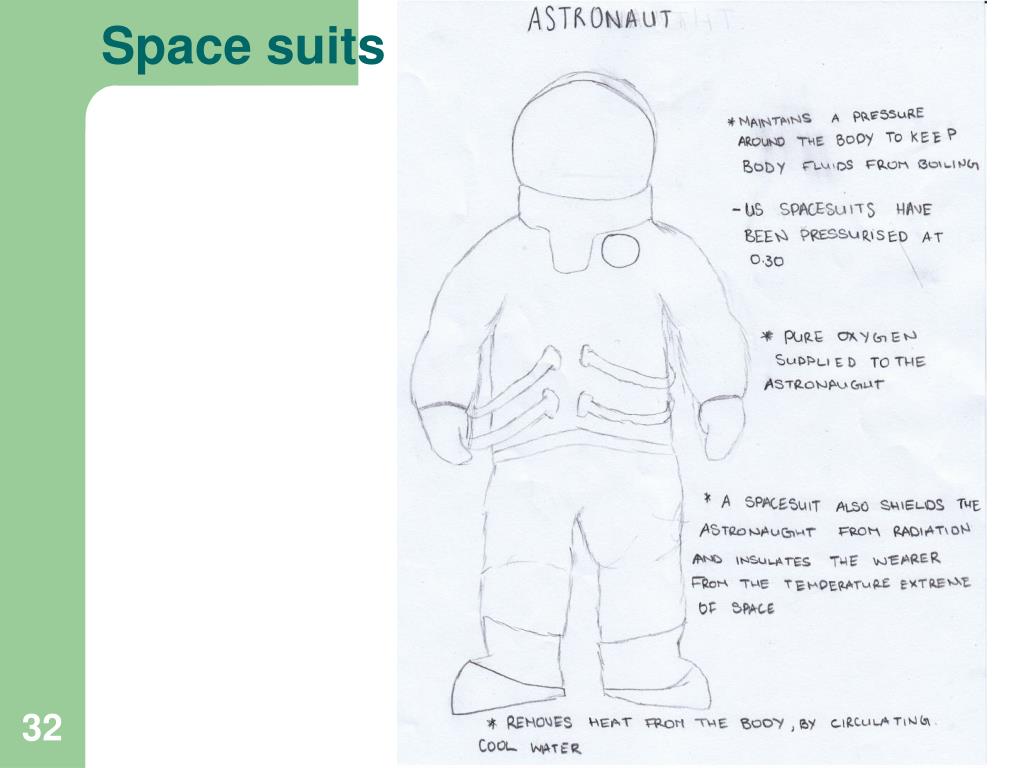 Space suits
ASTRONAUT
* MAINTAINS A PRESSURE
AROUND THE BODY TO KEEP
BODY FLUIDS FROM BOILING
- US SPACESUITS HAVE
BEEN PRESSURISED AT
0.30
* PURE OXYGEN
SUPPLIED TO THE
ASTRONAUGHT
* A SPACESUIT ALSO SHIELDS THE
ASTRONAUGHT FROM RADIATION
AND INSULATES THE WEARER
FROM THE TEMPERATURE EXTREME
OF SPACE
* REMOVES HEAT FROM THE BODY, BY CIRCULATING.
COOL WATER
32